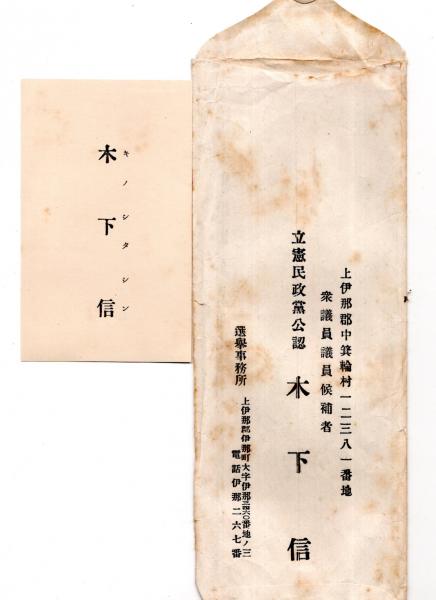 上伊那郡中箕輪村一二三八一番地
衆議員議員候補者
立憲民政黨公認 木下信
選擧事務所 上伊那郡伊那町大字伊那三四六〇番地ノ三
電話伊那二六七番
木下信
キノシタシン